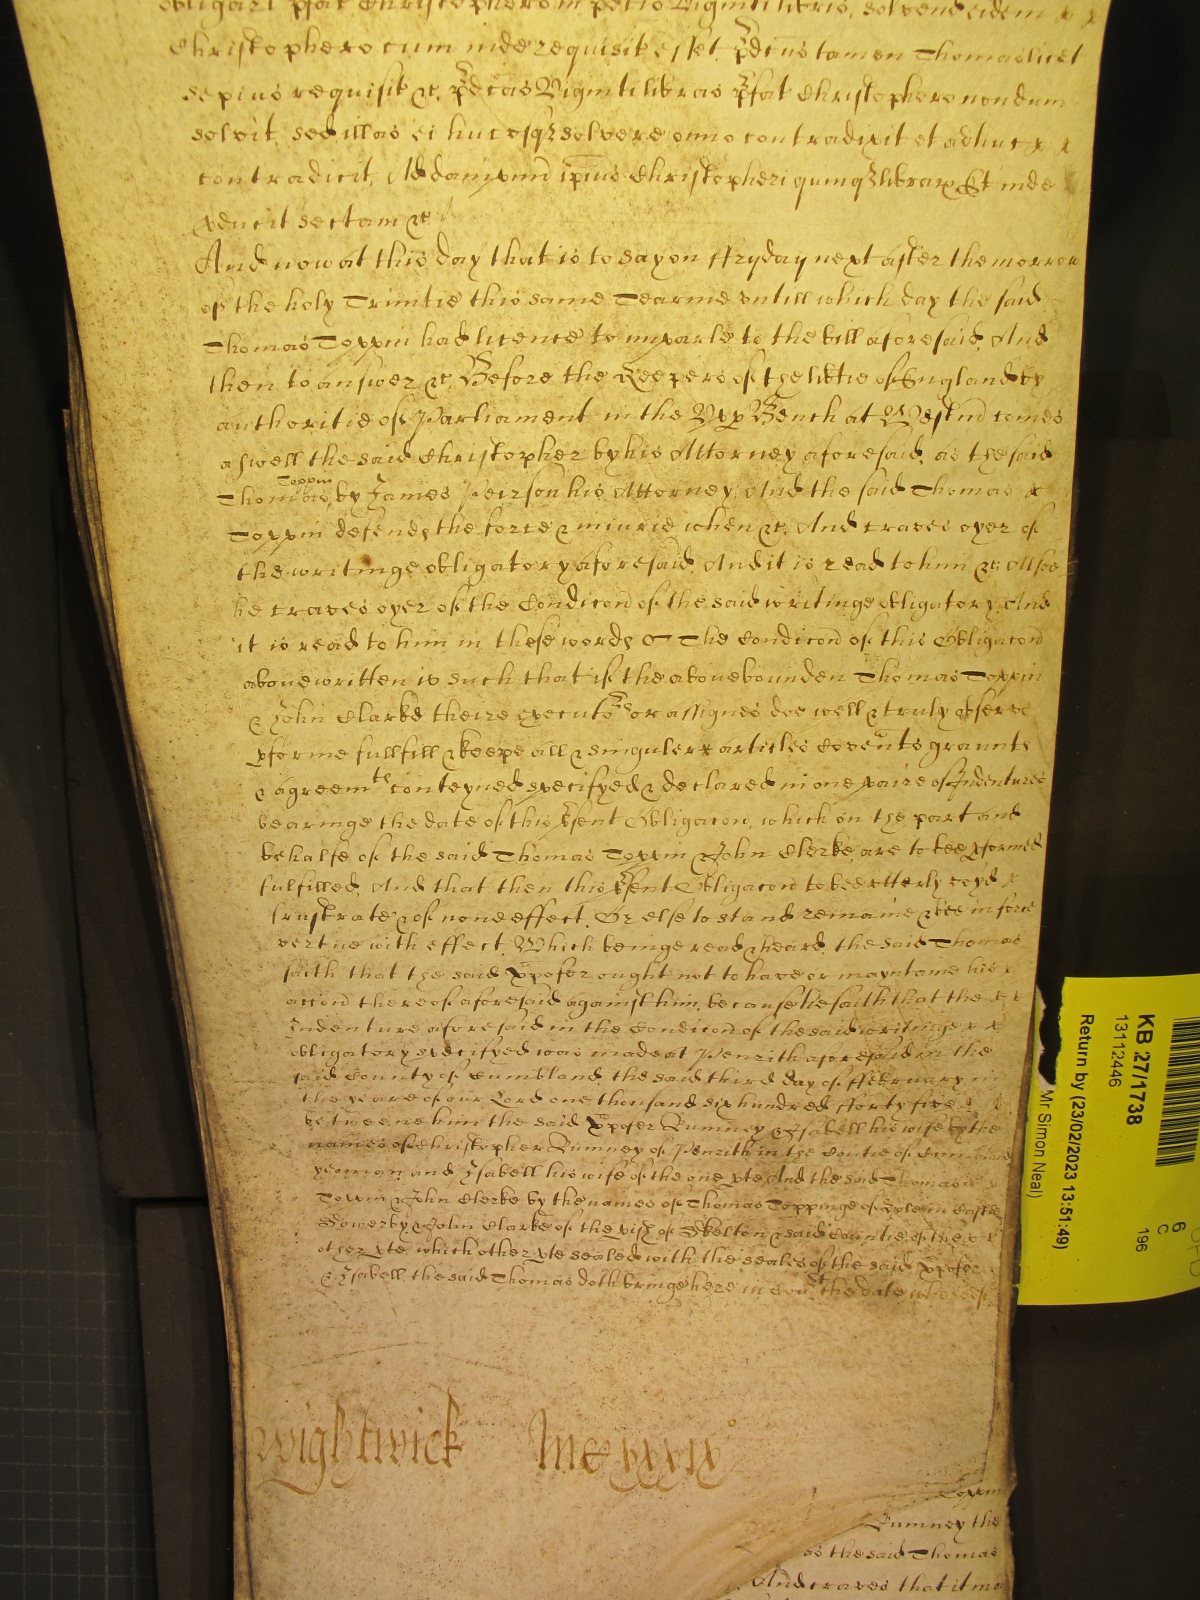 obligari p̄fat Christophero in p̄dcis Viginti libris, solvend eidem
Christophero cum inde requisit esset, p̄dcus tamen Thomas licet
sepius requisit &c, p̄dcas Viginti libras p̄fat Christophero nondum
solvit, sed illas ei hucusq; solvere omnio contradixit et adhuc
contradicit, Ad dampnū ip̄ius Christopheri quinq; librar, Et inde
p̄ducit sectam &c
And now at this day that is to say on ffryday next after the morrow
of the holy Trinitie this same Tearme untill which day the said
Thomas Toppin had licence to imparle to the bill aforesaid, And
then to answer &c, Before the Keepers of the libtie of England by
authoritie of Parliament in the Upp Bench at Westm̄ comes
aswell the said Christopher by his Attorney aforesaid, as the said
Thomas Toppin, by James Peirson his Attorney, And the said Thomas
Toppin defends the force & iniurie when &c, And craves oyer of
the writinge obligatory aforesaid, And it is read to him &c, Alsoe
he craves oyer of the Condicōn of the said writinge obligatory, And
it is read to him in these words The Condicōn of this Obligacōn
abovewritten is such that if the abovebounden Thomas Toppin
& John Clarke theire executors or assignes doe well & truly observe
pforme fullfill & keepe all & singuler articles Covents graunts
& agreemts conteyned specifyed & declared in one paire of Indentures
bearinge the date of this p̄sent Obligacon, which on the part and
behalfe of the said Thomas Toppin & John Clerke, are to bee pformed
fulfilled, And that then this p̄sent Obligacōn to bee utterly voyd
frustrate & of none effect, Or else to stand remaine & bee in force
vertue with effect, Which beinge read & heard, the said Thomas
saith that the said Xpofer ought not to have or mayntaine his
accōn thereof aforesaid against him, because he saith that the
Indenture aforesaid in the Condicōn of the said writinge
obligatory specifyed was made at Penrith aforesaid in the
said County of Cumbland, the said third day of ffebruary in
the yeare of our Lord one thousand six hundred fforty five
betweene him the said Xpofer Rumney & Isabell his wife by the
names of Christopher Rumney of Penrith in the Countie of Cumbland
yeoman and Isabell his wife of the one pte, And the said Thomas
Toppin & John Clerke by the names of Thomas Toppinge of in Castle
Sowerby & John Clarke of the pish of Skelton & said Countie of the
other pte, which other pte sealed with the seales of the said Xpofer
& Isabell the said Thomas doth bringe here in Court, the date whereof
Wightwick
Toppin
Rumney the
as the said Thomas
And craves that it ma
KB 27/1738
13112446
Return by (23/02/2023 13:51:49)
Mr Simon Neal)
196
6
C